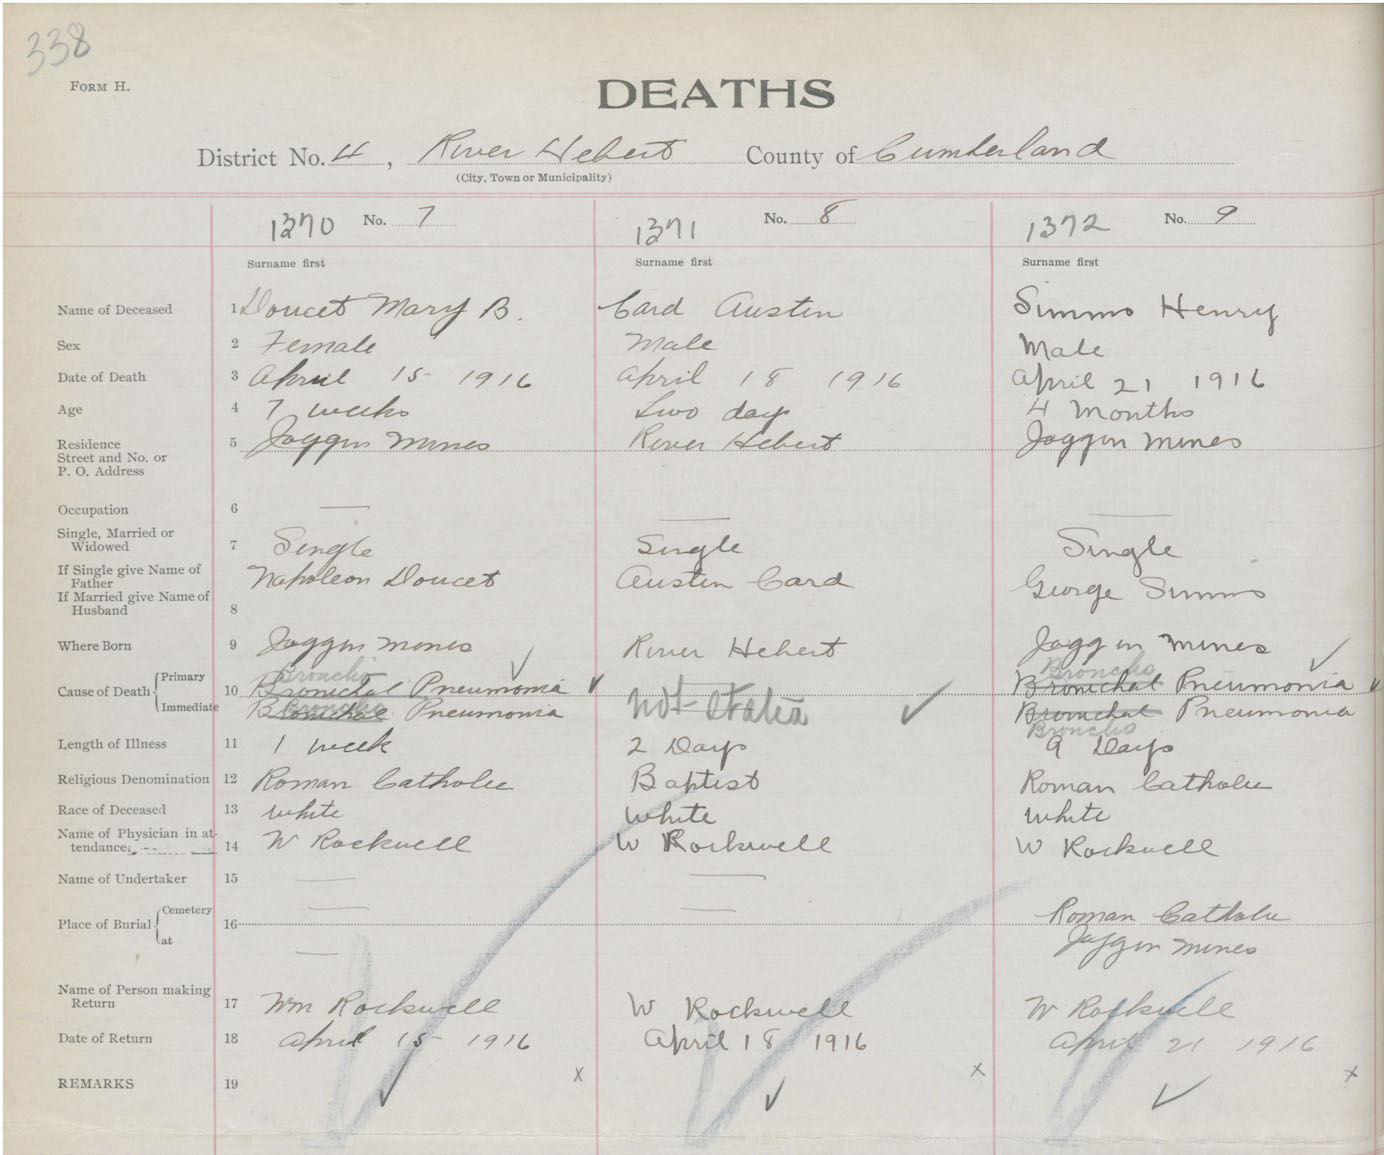 338
FORM H.
DEATHS
District No. 4, River Hebert County of Cumberland
(City, Town or Municipality)
1370 No. 7 1371 No. 8 1372 No. 9
Surname first Surname first Surname first
Name of Deceased 1 Doucet Mary B. Card Austin Simms Henry
Sex 2 Female Male Male
Date of Death 3 April 15 1916 April 18 1916 April 21 1916
Age 4 7 weeks Two days 4 Months
Residence 5 Joggin Mines River Hebert Joggin Mines
Street and No. or
P. O. Address
Occupation 6 —— —— ——
Single, Married or
Widowed 7 Single Single Single
If Single give Name of
Father Napoleon Doucet Austin Card George Simms
If Married give Name of
Husband 8
Where Born 9 Joggin Mines River Hebert Joggin Mines
Broncho Broncho
Cause of Death Primary 10 Bronichal Pneumonia Not Stated Bronichal Pneumonia
Immediate Bronichal Broncho Pneumonia Bronichal Pneumonia
Broncho
Length of Illness 11 1 week 2 Days 9 Days
Religious Denomination 12 Roman Catholic Baptist Roman Catholic
Race of Deceased 13 White White White
Name of Physician in at-
tendance 14 W Rockwell W Rockwell W Rockwell
Name of Undertaker 15 —— ——
Place of Burial Cemetery 16 —— —— Roman Catholic
at —— Joggin Mines
Name of Person making
Return 17 Wm Rockwell W Rockwell W Rockwell
Date of Return 18 April 15 1916 April 18 1916 April 21 1916
REMARKS 19 x x x